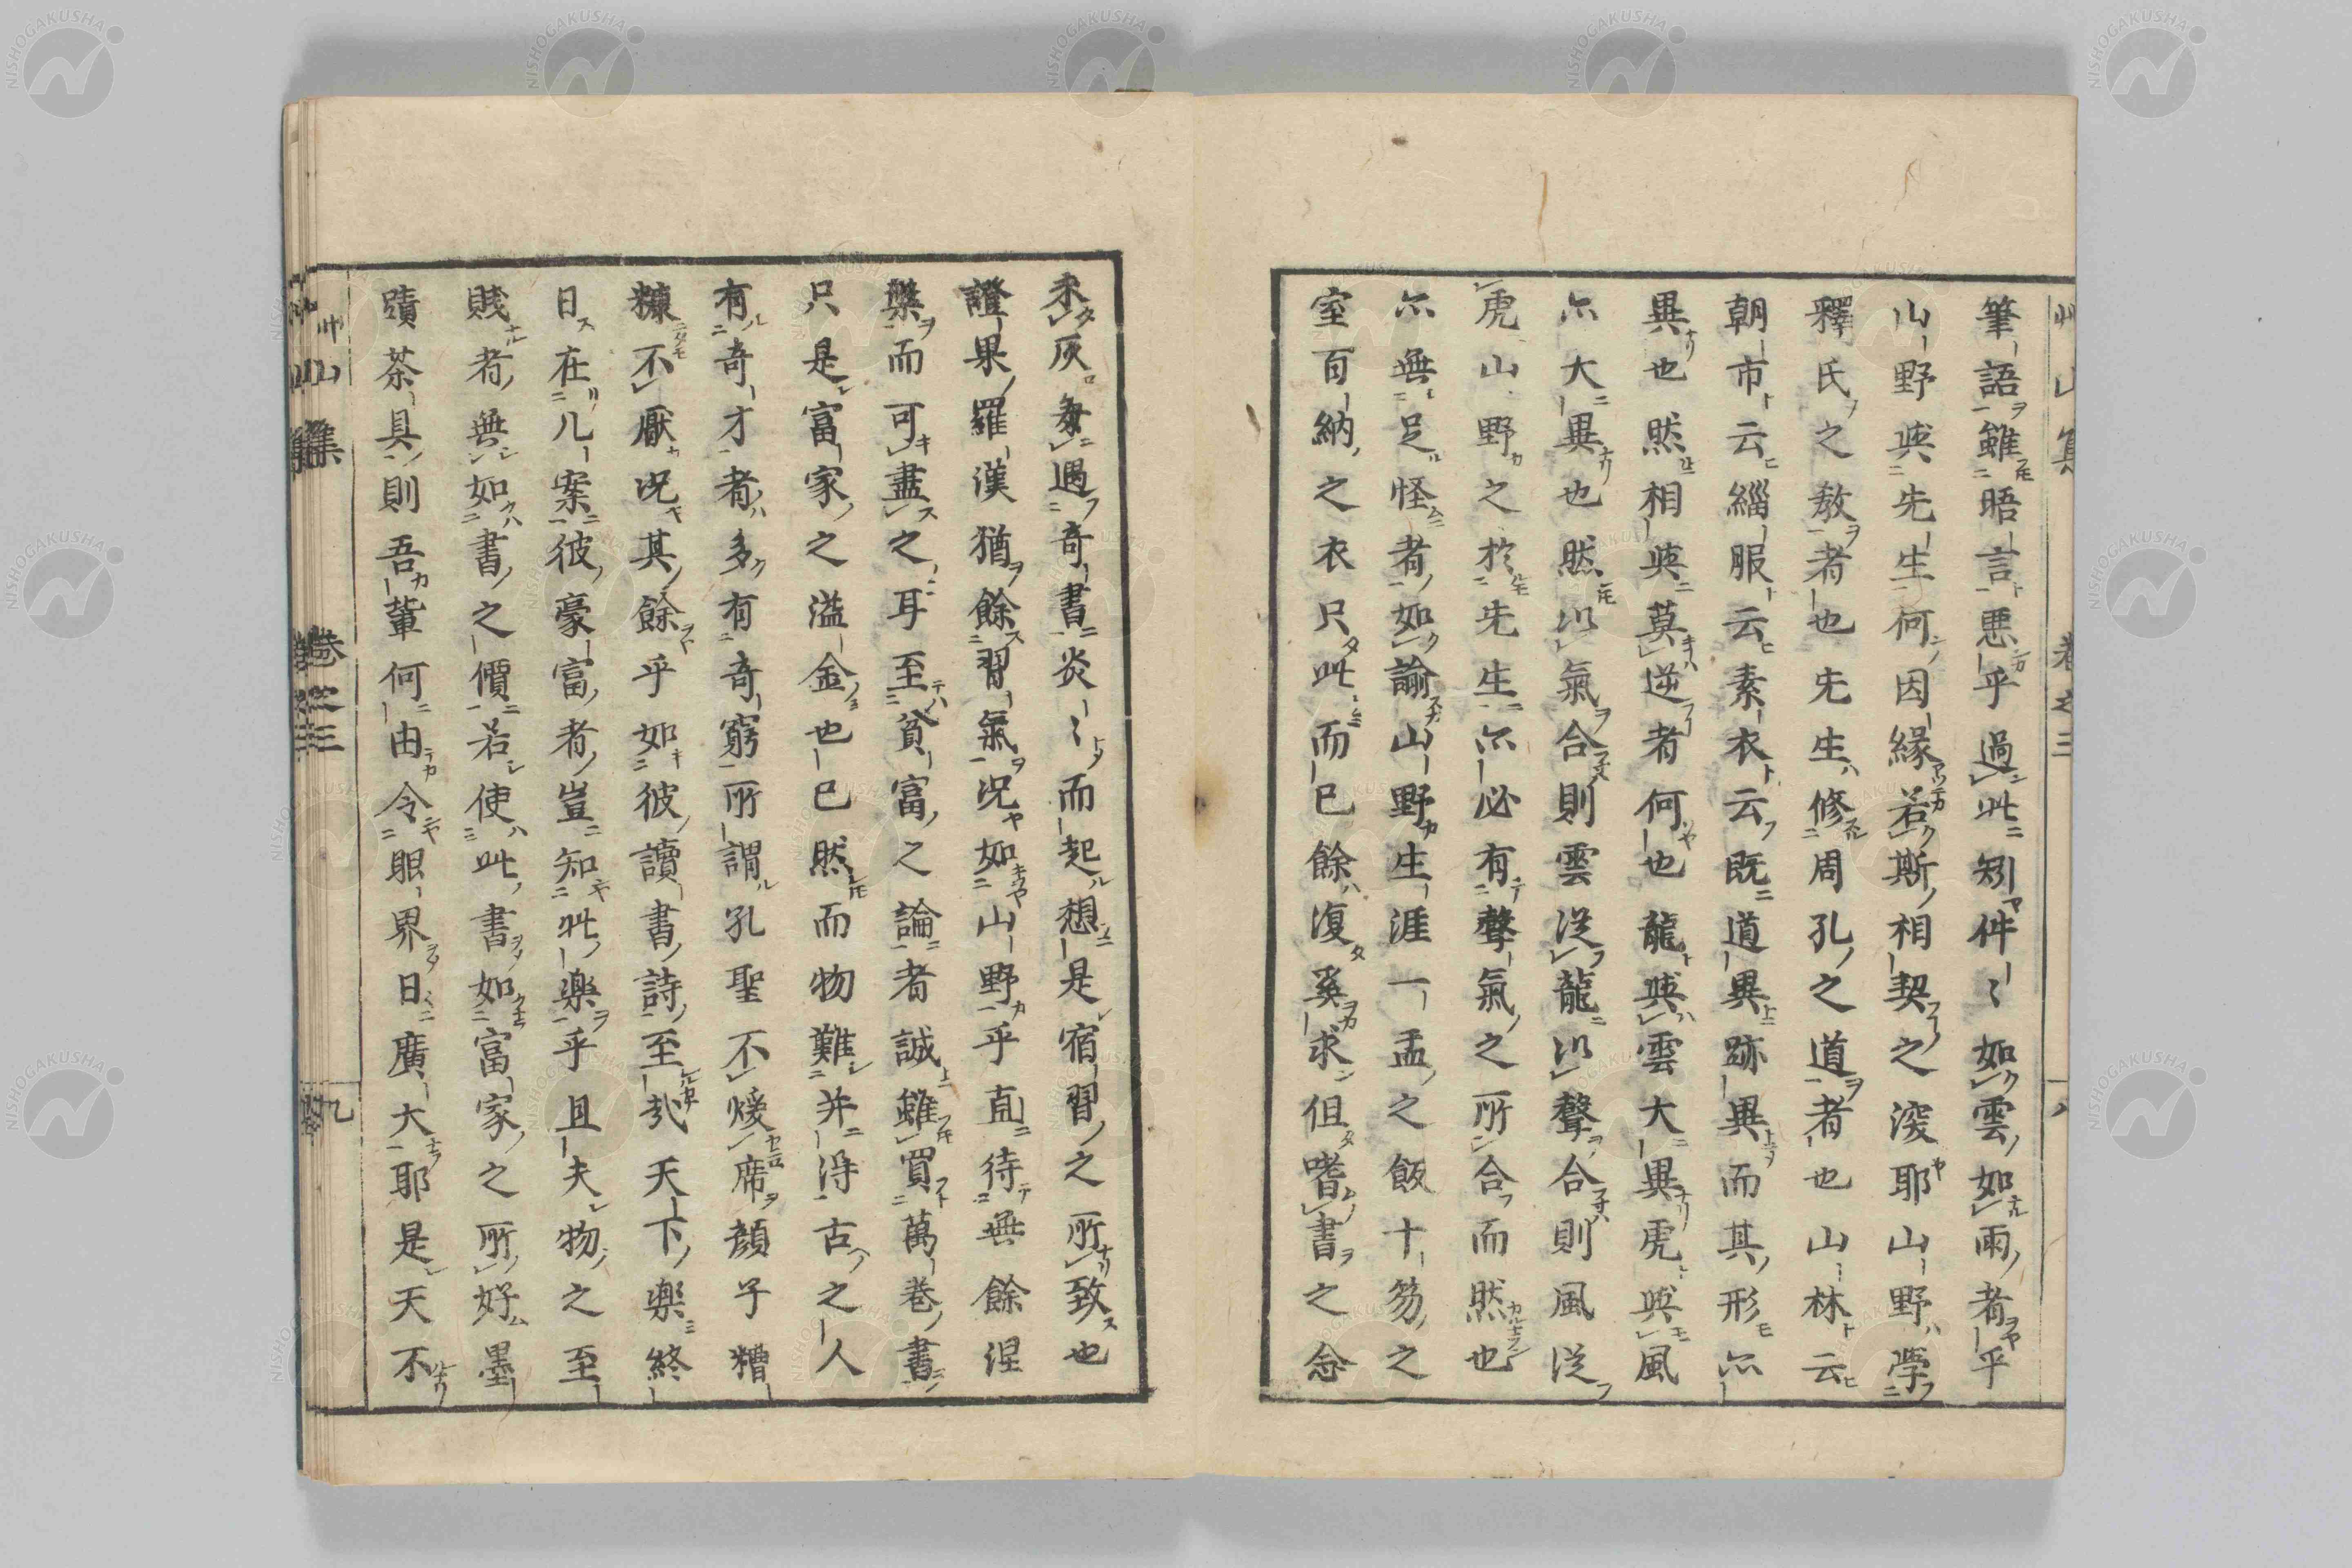 艸山集 卷之三 一八
筆語雖晤言悪乎過此矧件〻如雲如雨者乎
山野與先生何因緣若斯相契之深耶山野學
釋氏之教者也先生修周孔之道者也山林云
朝市云緇服云素衣云既道異跡異而其形亦
異也然相與莫逆者何也龍與雲大異虎與風
亦大異也然以氣合則雲從龍以聲合則風從
虎山野之於先生亦必有聲氣之所合而然也
亦無足怪者如諭山野生涯一盂之飯十笏之
室百納之衣只此而已餘復奚求但嗜書之念
未灰每遇奇書炎〻而起想是宿習之所致也
證果羅漢猶餘習氣况如山野乎直待無餘涅
槃而可盡之耳至貧富之論者誠雖買萬巻書
只是富家之溢金也已然而物難并得古之人
有奇才者多有奇窮所謂孔聖不煖席顔子糟
糠不厭况其餘乎如彼讀書詩至哉天下樂終
日在几案彼豪富者豈知此樂乎且夫物之至
賤者無如書之價若使此書如富家之所好墨
蹟茶具則吾輩何由令眼界日廣大耶是天不
艸山集 卷之三 九
NISHOGAKUSHA